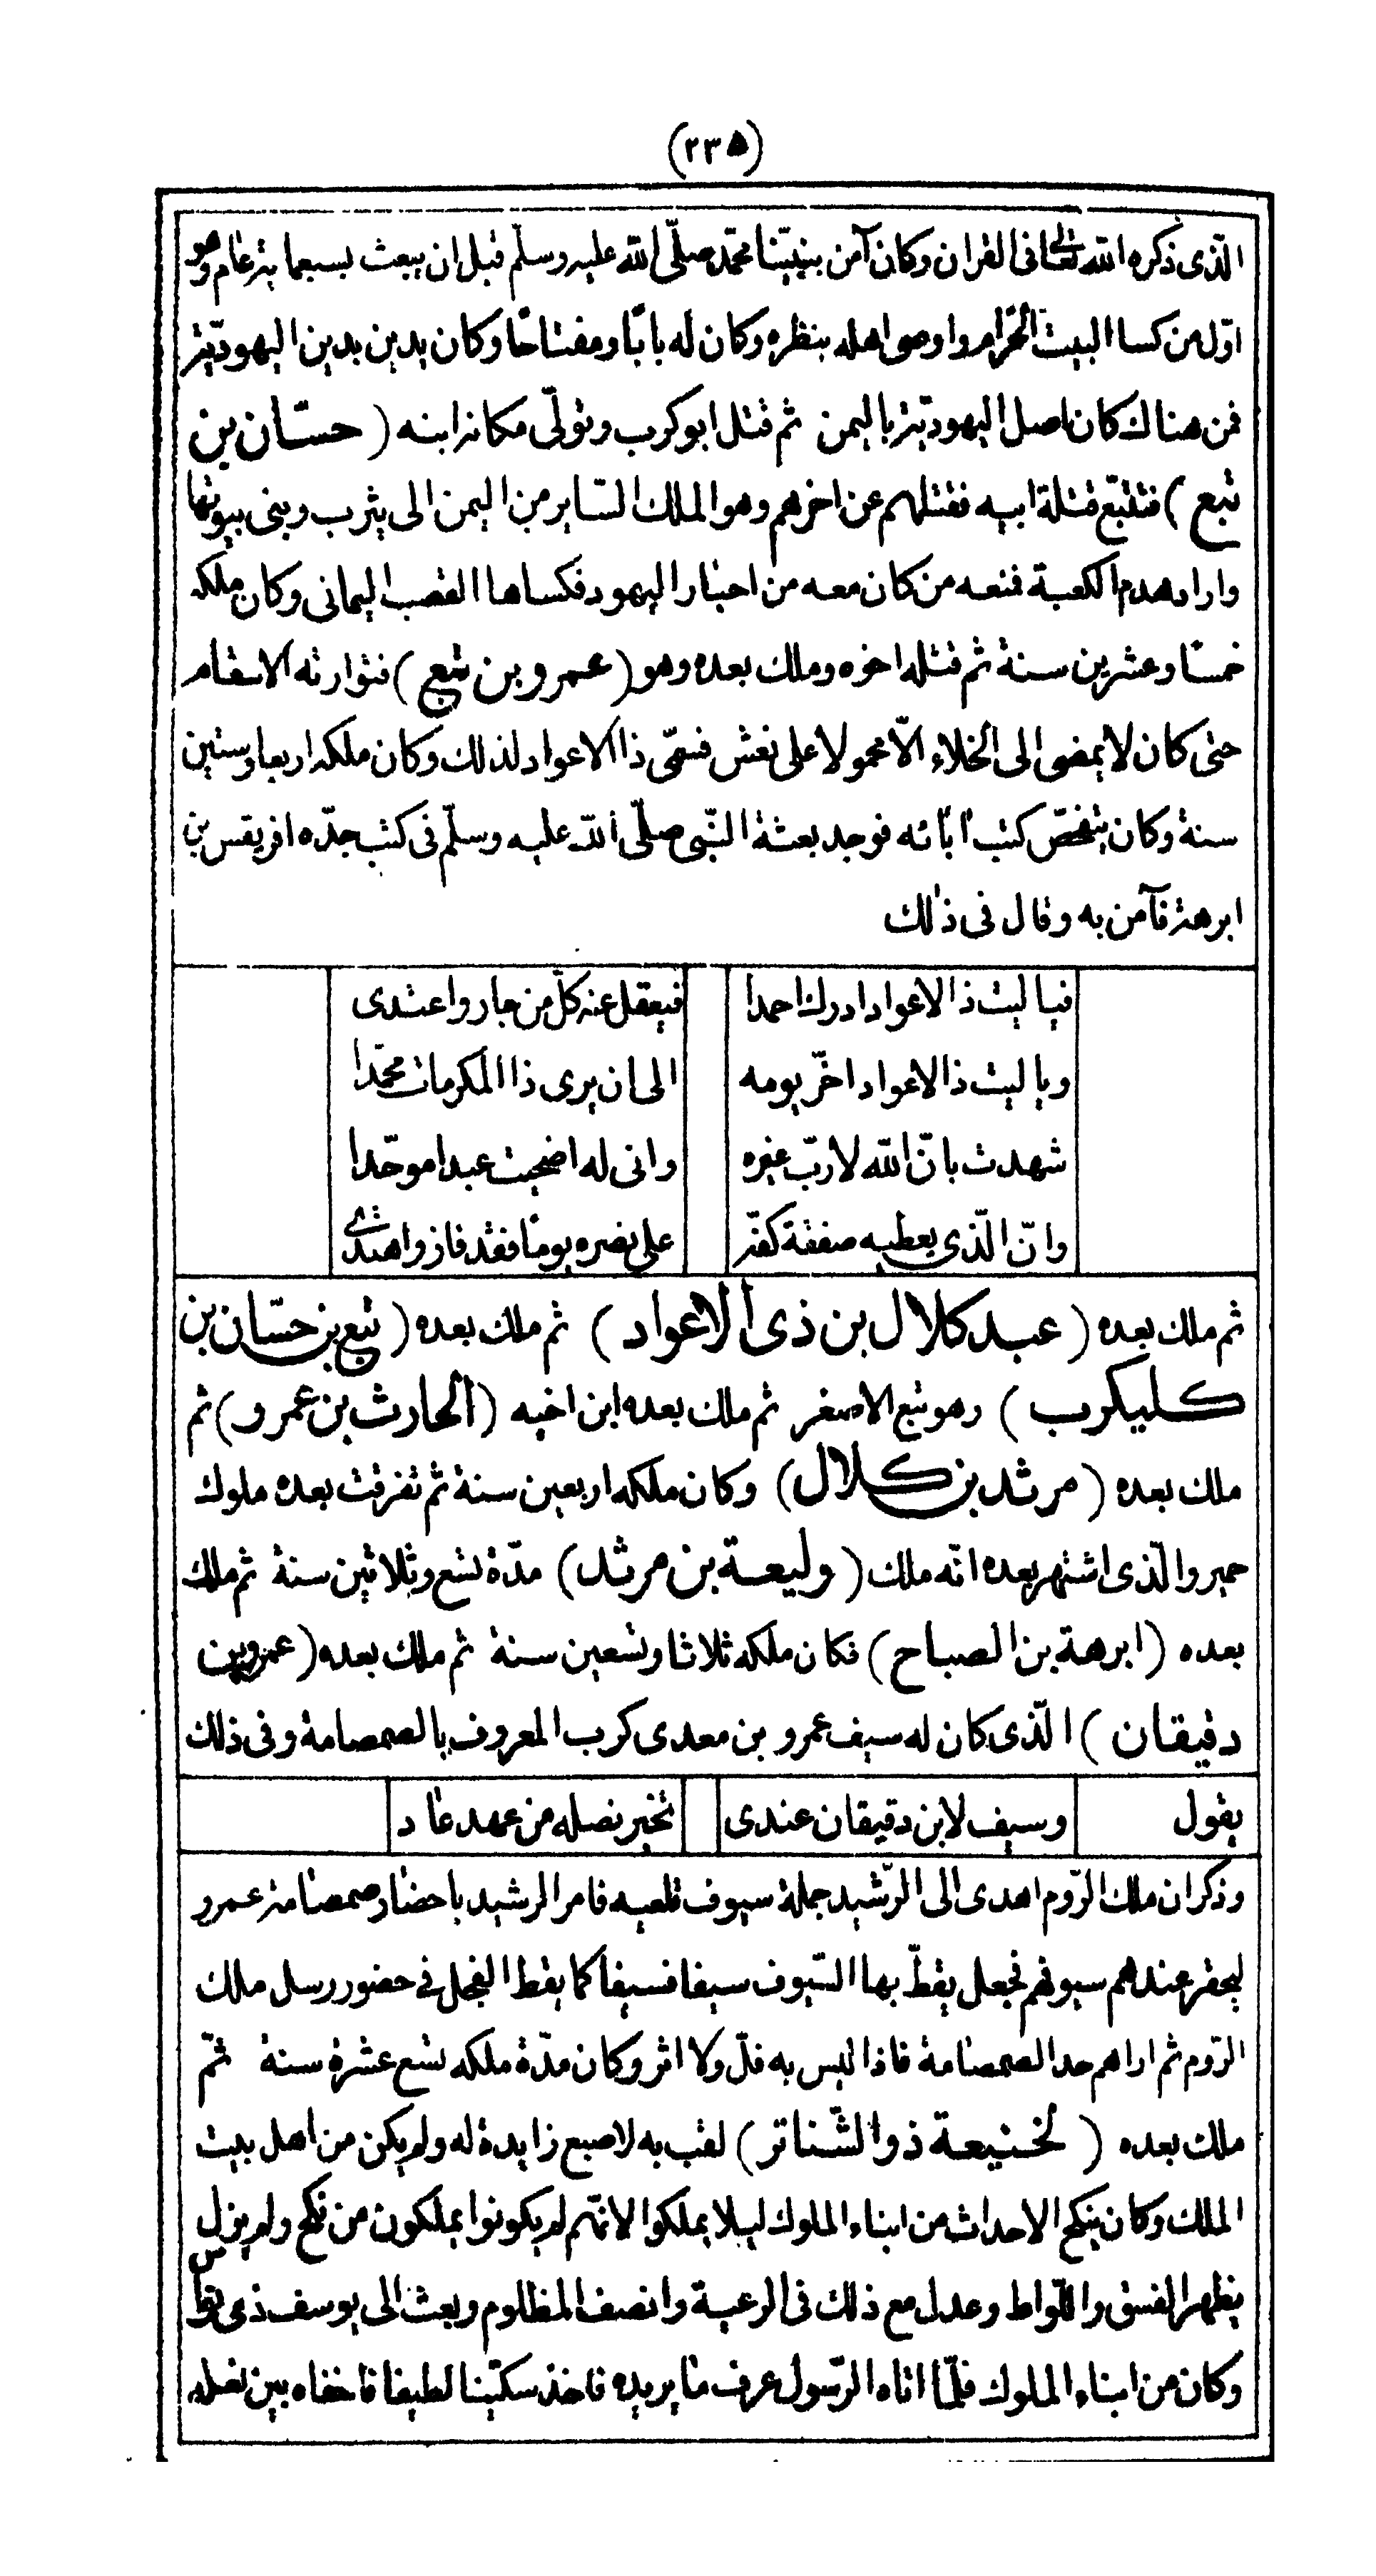 (٢٣٥)
الّذى ذكره الله تعالى فى القران وكان آمن بنبيّنا محمّد صلّى الله عليه وسلّم قبل ان يبعث بسبعماية عام وهو
اوّل من كسا البيت الحرام واوصى اهله بنظره وكان له بابًا ومفتاحًا وكان يدين بدين اليهوديّة
فمن هناك كان اصل اليهوديّة باليمن ثم قتل ابو كرب وتولّى مكانه ابنه (حسّان بن
تبع) فتتبّع قتلة ابيه فقتلهم عن اخرهم وهو الملك السّاير من اليمن الى يثرب وبنى بيوتها
واراد هدم الكعبة فمنعه من كان معه من احبار اليهود فكساها القصب اليمانى وكان ملكه
خمسًا وعشرين سنة ثم قتله اخوه وملك بعده وهو (عمرو بن تبع) فتوارثه الاسقام
حتى كان لا يمضى الى الخلاء الّا محمولا على نعش فسمّى ذا الاعواد لذلك وكان ملكه اربعا وستين
سنة وكان يتفحّص كتب ابائه فوجد بعثة النّبى صلّى الله عليه وسلّم فى كتب جدّه افريقس بن
ابرهة فآمن به وقال فى ذلك
فيا ليت ذا الاعواد ادرك احمدا فيعقل عنه كلّ من جار واعتدى
ويا ليت ذا الاعواد اخّر يومه الى ان يرى ذا المكرمات محمّدا
شهدت بانّ الله لا ربّ غيره وانى له اضحيت عبدا موحّدا
وانّ الّذى يعطيه صفقة كفّه على نصره يومًا فقد فاز واهتدى
ثم ملك بعده (عبد كلال بن ذى الاعواد) ثم ملك بعده (تبع بن حسّان بن
كليكرب) وهو تبع الاصغر ثم ملك بعده ابن اخيه (الحارث بن عمرو) ثم
ملك بعده (مرثد بن كلال) وكان ملكه اربعين سنة ثم تفرقت بعده ملوك
حمير والّذى اشتهر بعده انّه ملك (وليعة بن مرثد) مدّة تسع وثلاثين سنة ثم ملك
بعده (ابرهة بن الصباح) فكان ملكه ثلاثا وتسعين سنة ثم ملك بعده (عمرو بن
دقيقان) الّذى كان له سيف عمرو بن معدى كرب المعروف بالصمصامة وفى ذلك
يقول وسيف لابن دقيقان عندى تخير نصله من عهد عاد
وذكر ان ملك الرّوم اهدى الى الرّشيد جملة سيوف قلعيه فامر الرشيد باحضار صمصامة عمرو
ليحقر عندهم سيوفهم فجعل يقطّ بها السّيوف سيفا فسيفا كما يقط الفجل فى حضور رسل ملك
الرّوم ثم اراهم حد الصمصامة فاذا ليس به فلّ ولا اثر وكان مدّة ملكه تسع عشرة سنة ثمّ
ملك بعده (لخنيعة ذو الشّناتر) لقب به لاصبع زايدة له ولم يكن من اهل بيت
الملك وكان ينكح الاحداث من ابناء الملوك ليلا يملكوا لانّهم لم يكونوا يملكون من نكح ولم يزل
يظهر الفسق واللّواط وعدل مع ذلك فى الرعية وانصف المظلوم وبعث الى يوسف ذى نواس
وكان من ابناء الملوك فلمّا اتاه الرّسول عرف ما يريده فاخذ سكّينا لطيفا فاخفاه بين نعليه